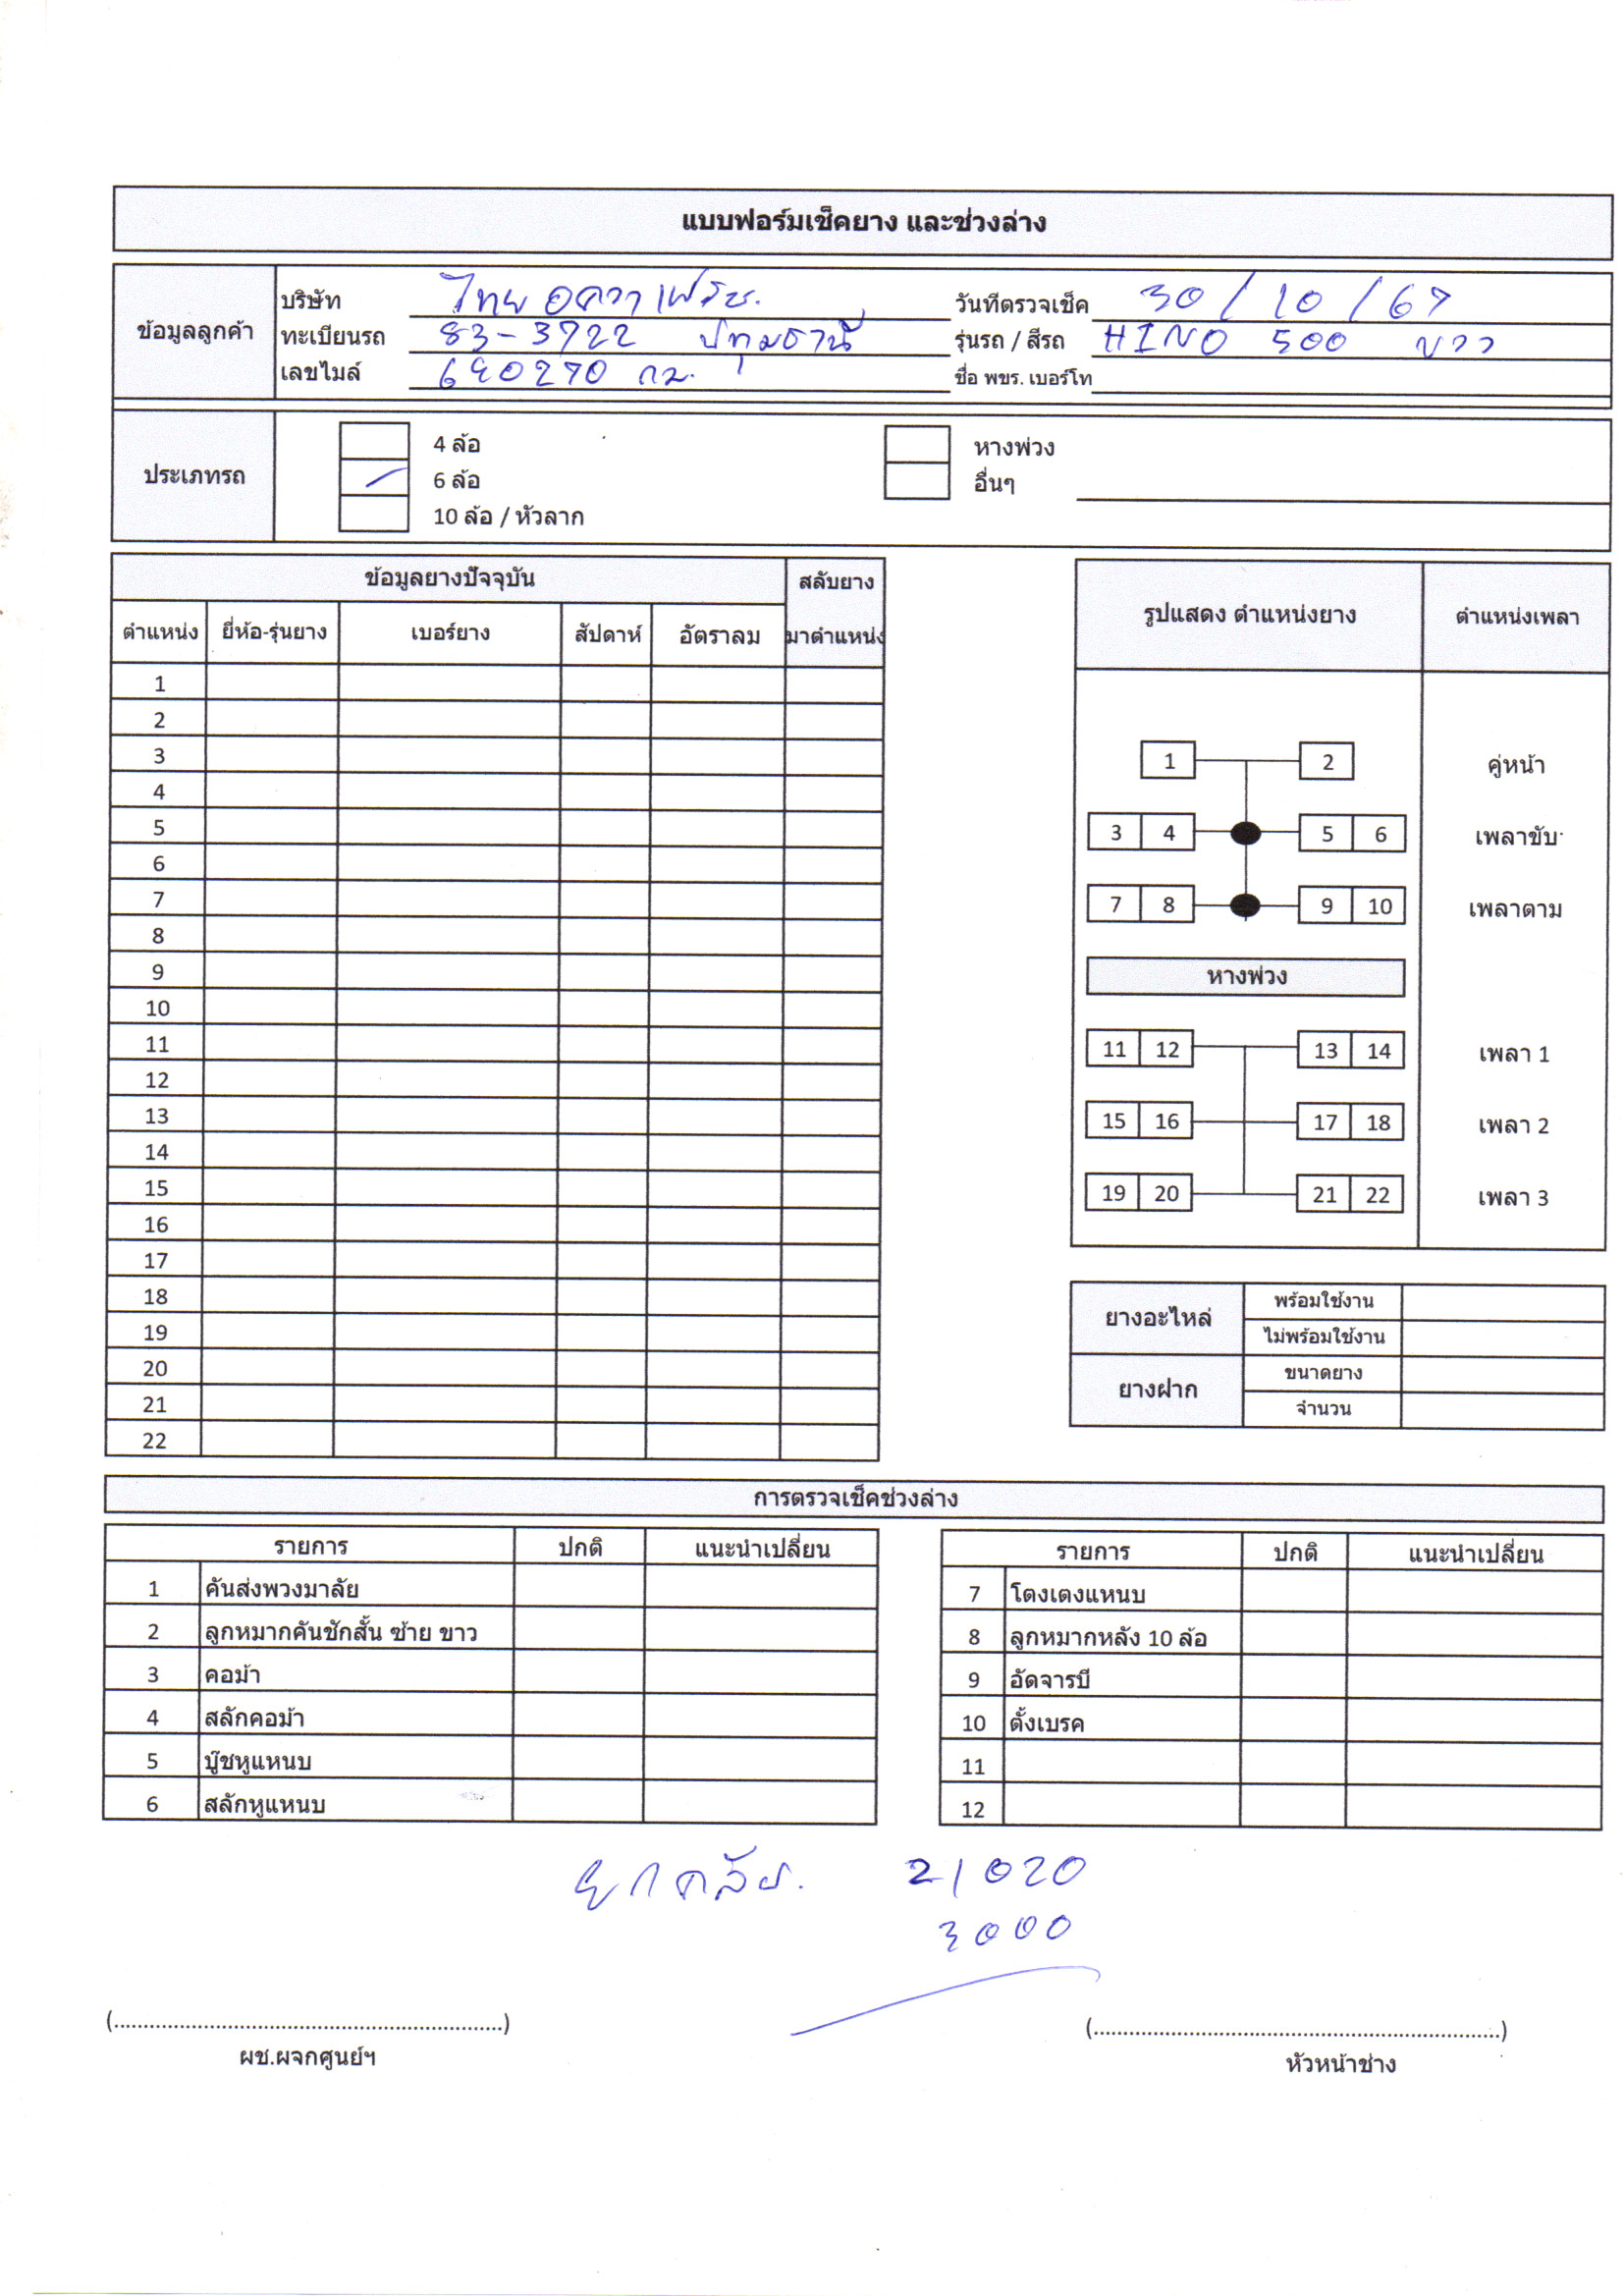 แบบฟอร์มเช็คยาง และช่วงล่าง
ข้อมูลลูกค้า
บริษัท ไทย อควา เฟรช. วันที่ตรวจเช็ค 30/10/67
ทะเบียนรถ 83-3722 ปทุมธานี รุ่นรถ / สีรถ HINO 500 ขาว
เลขไมล์ 690270 กม. ชื่อ พขร. เบอร์โท
ประเภทรถ
4 ล้อ หางพ่วง
6 ล้อ อื่นๆ
10 ล้อ / หัวลาก
ข้อมูลยางปัจจุบัน สลับยาง
ตำแหน่ง ยี่ห้อ-รุ่นยาง เบอร์ยาง สัปดาห์ อัตราลม มาตำแหน่ง
1
2
3
4
5
6
7
8
9
10
11
12
13
14
15
16
17
18
19
20
21
22
รูปแสดง ตำแหน่งยาง ตำแหน่งเพลา
1 2 คู่หน้า
3 4 5 6 เพลาขับ
7 8 9 10 เพลาตาม
หางพ่วง
11 12 13 14 เพลา 1
15 16 17 18 เพลา 2
19 20 21 22 เพลา 3
ยางอะไหล่ พร้อมใช้งาน
ไม่พร้อมใช้งาน
ยางฝาก ขนาดยาง
จำนวน
การตรวจเช็คช่วงล่าง
รายการ ปกติ แนะนำเปลี่ยน
1 คันส่งพวงมาลัย
2 ลูกหมากคันชักสั้น ซ้าย ขาว
3 คอม้า
4 สลักคอม้า
5 บู๊ชหูแหนบ
6 สลักหูแหนบ
รายการ ปกติ แนะนำเปลี่ยน
7 โตงเตงแหนบ
8 ลูกหมากหลัง 10 ล้อ
9 อัดจารบี
10 ตั้งเบรค
11
12
21020
3000
(..................................................................)
ผช.ผจกศูนย์ฯ
(..................................................................)
หัวหน้าช่าง